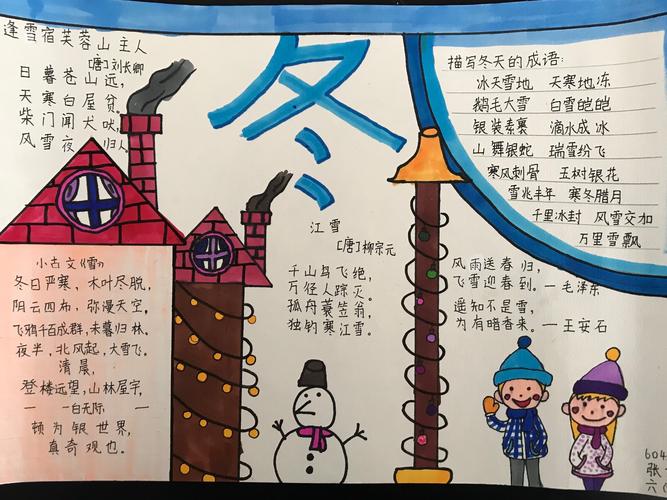 逢雪宿芙蓉山主人
[唐]刘长卿
日暮苍山远，
天寒白屋贫。
柴门闻犬吠，
风雪夜归人。
冬
描写冬天的成语:
冰天雪地 天寒地冻
鹅毛大雪 白雪皑皑
银装素裹 滴水成冰
山舞银蛇 瑞雪纷飞
寒风刺骨 玉树银花
雪兆丰年 寒冬腊月
千里冰封 风雪交加
万里雪飘
小古文《雪》
冬日严寒，木叶尽脱，
阴云四布，弥漫天空，
飞鸦千百成群，未暮归林。
夜半，北风起，大雪飞。
清晨，
登楼远望，山林屋宇，
一白无际
顿为银世界，
真奇观也。
江雪
[唐]柳宗元
千山鸟飞绝，
万径人踪灭。
孤舟蓑笠翁，
独钓寒江雪。
风雨送春归，
飞雪迎春到。—毛泽东
遥知不是雪，
为有暗香来。—王安石
604
张
六